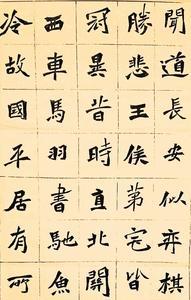 聞道長安似弈棋
勝悲王侯第宅皆
冠異昔時直北關
西車馬羽書馳魚
冷故國平居有所